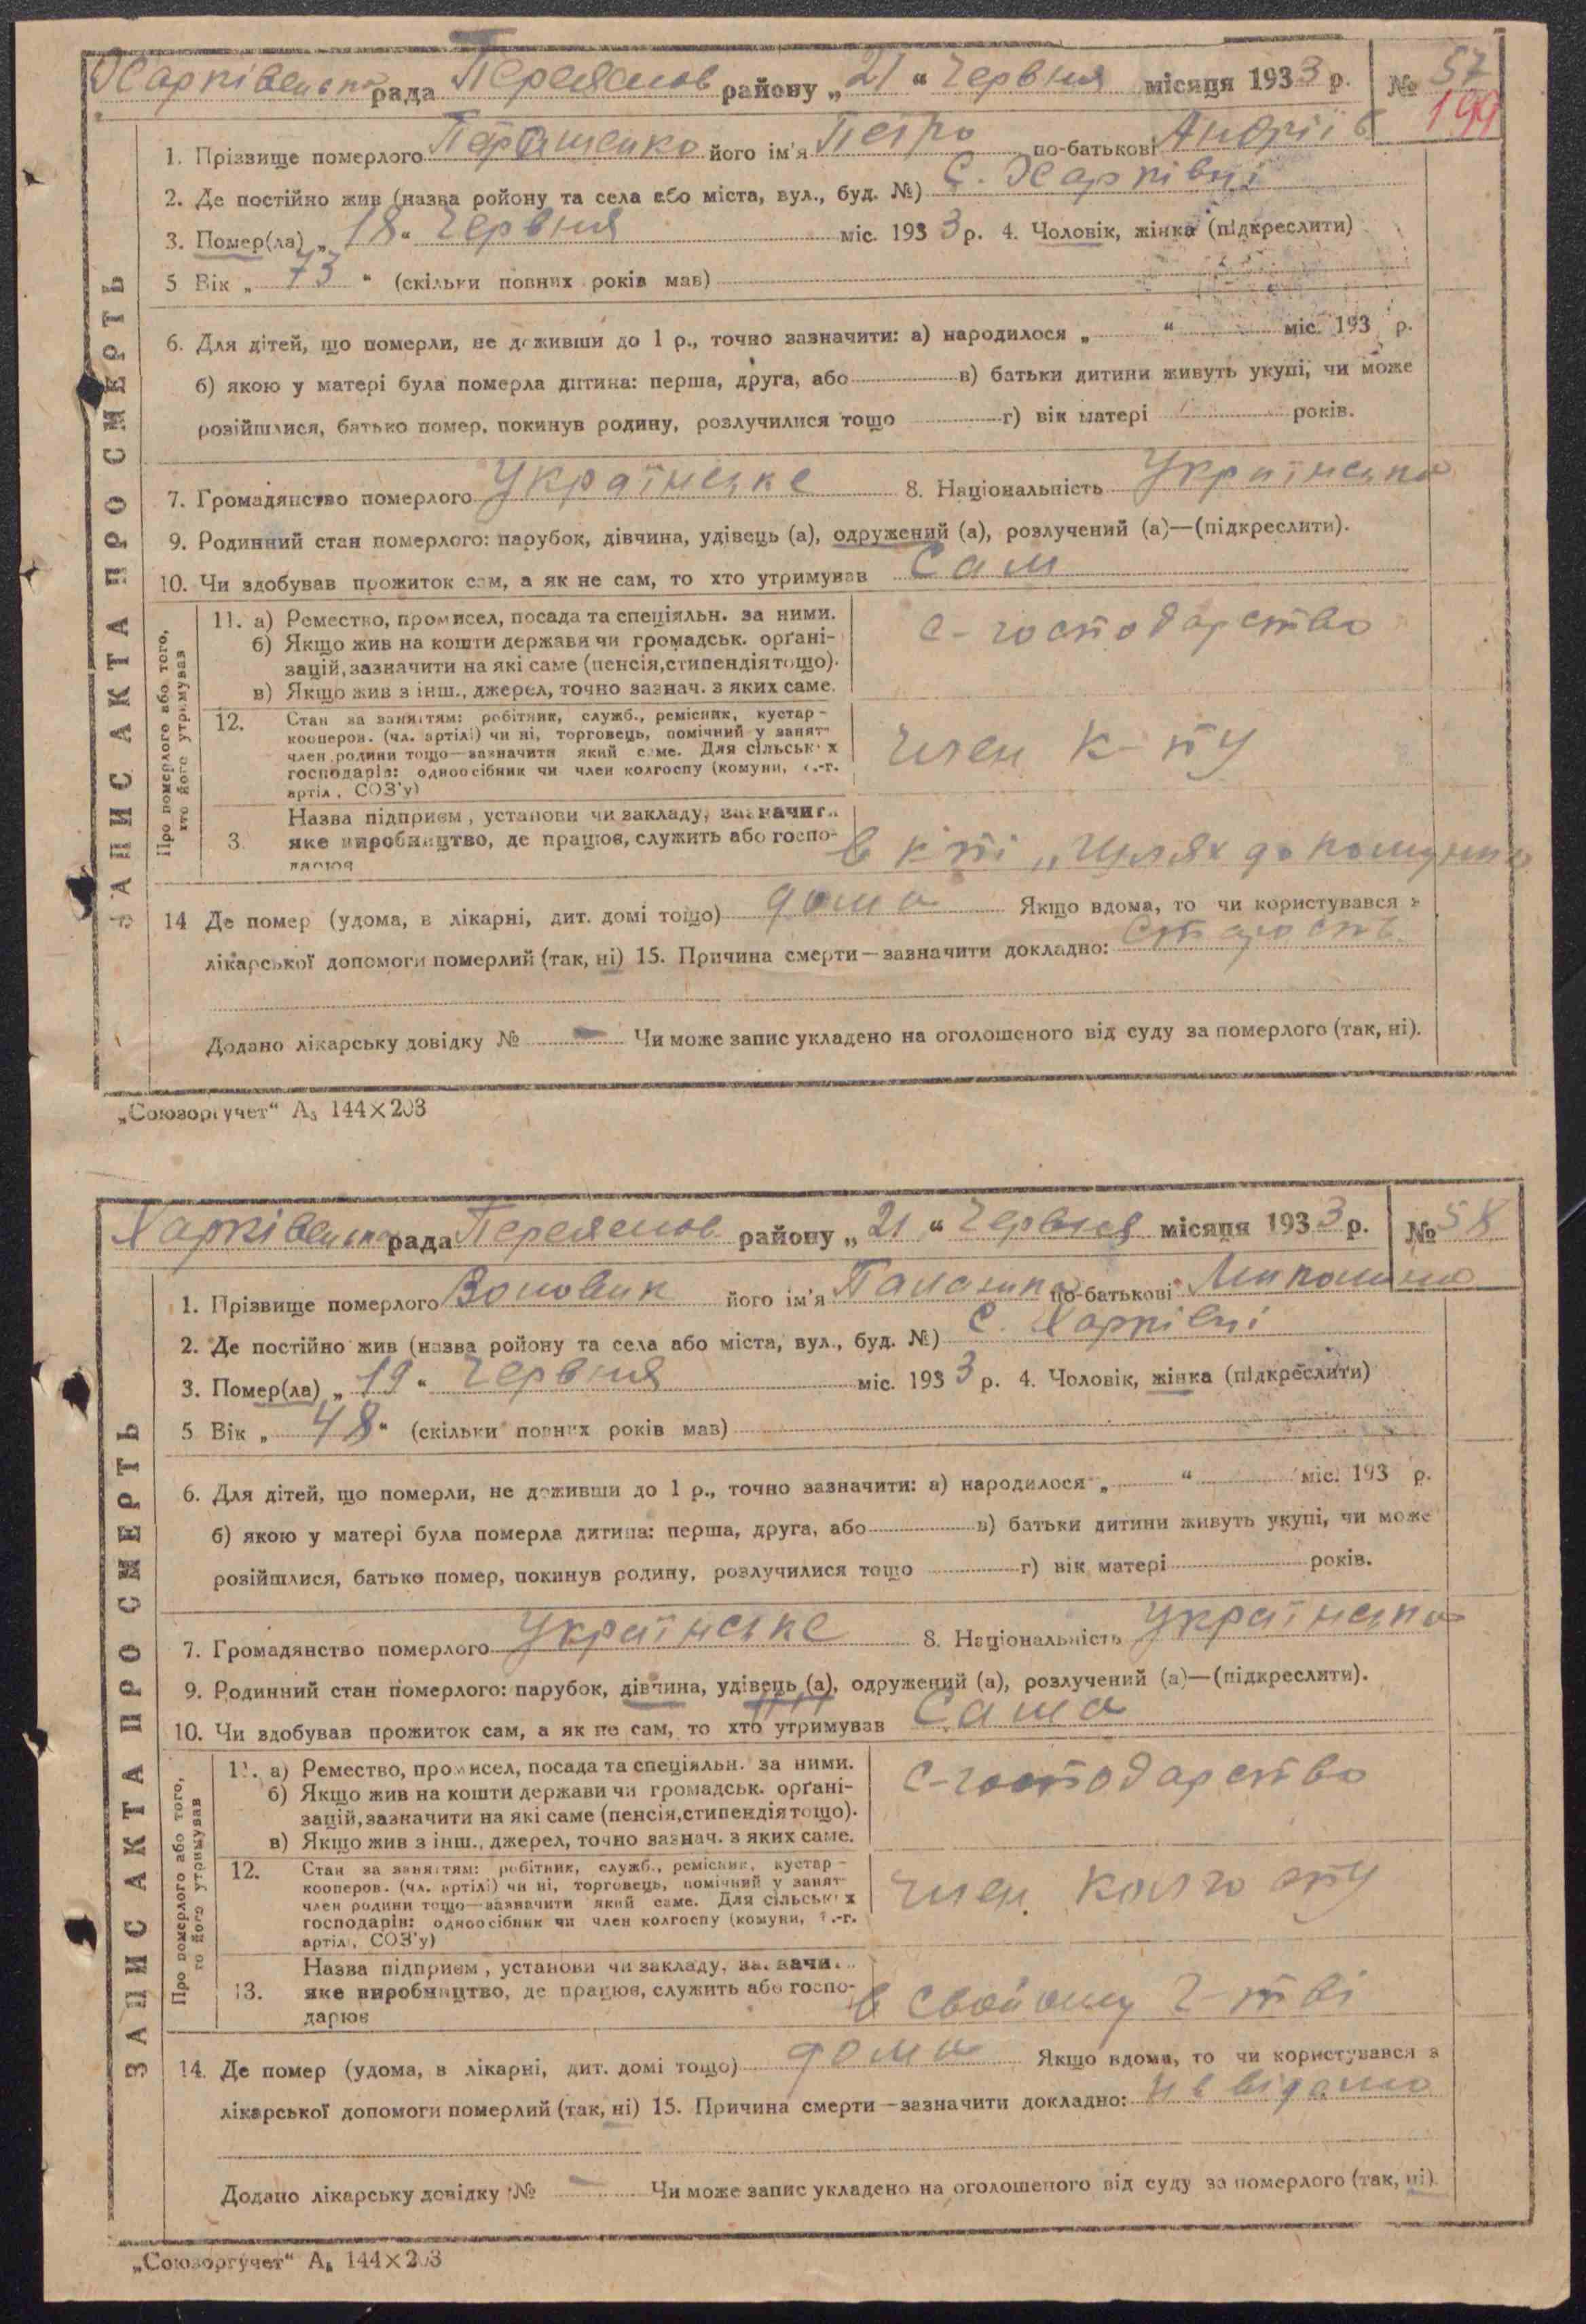 Харківецька рада Переяслов району „21“ Червня місяця 1933 р. № 57
199
1. Прізвище померлого його ім'я Петро по-батькові Андріїв
2. Де постійно жив (назва ройону та села або міста, вул., буд. №) С. Харківці
3. Помер(ла) „18“ Червня міс. 1933 р. 4. Чоловік, жінка (підкреслити)
5 Вік „73“ (скільки повних років мав)
6. Для дітей, що померли, не доживши до 1 р., точно зазначити: а) народилося „ “ міс. 193 р.
б) якою у матері була померла дитина: перша, друга, або в) батьки дитини живуть укупі, чи може
розійшлися, батько помер, покинув родину, розлучилися тощо г) вік матері років.
7. Громадянство померлого Українське 8. Національність Українська
9. Родинний стан померлого: парубок, дівчина, удівець (а), одружений (а), розлучений (а)—(підкреслити).
10. Чи здобував прожиток сам, а як не сам, то хто утримував Сам
ЗАПИС АКТА ПРО СМЕРТЬ
Про померлого або того, хто його утримував
11. а) Ремество, промисел, посада та спеціяльн. за ними.
б) Якщо жив на кошти держави чи громадськ. орґані-
зацій, зазначити на які саме (пенсія, стипендія тощо).
в) Якщо жив з інш., джерел, точно зазнач. з яких саме.
с-господарство
12. Стан за заняттям: робітник, служб., ремісник, кустар-
кооперов. (чл. артілі) чи ні, торговець, помічний у занят
член родини тощо—зазначити який саме. Для сільських
господарів: одноосібник чи член колгоспу (комуни, с.-г.
артіл, СОЗ'у)
член к-пу
3. Назва підприєм, установи чи закладу, зазначит
яке виробництво, де працює, служить або госпо-
дарює
в к-пі „Шлях до комунізма
14 Де помер (удома, в лікарні, дит. домі тощо) дома Якщо вдома, то чи користувався з
лікарської допомоги померлий (так, ні) 15. Причина смерти—зазначити докладно: старость
Додано лікарську довідку № — Чи може запис укладено на оголошеного від суду за померлого (так, ні).
„Союзоргучет“ А₅ 144×203
Харківецька рада Переяслов району „21“ Червня місяця 1933 р. № 58
1. Прізвище померлого його ім'я по-батькові
2. Де постійно жив (назва ройону та села або міста, вул., буд. №) С. Харківці
3. Помер(ла) „19“ Червня міс. 1933 р. 4. Чоловік, жінка (підкреслити)
5 Вік „48“ (скільки повних років мав)
6. Для дітей, що померли, не доживши до 1 р., точно зазначити: а) народилося „ “ міс. 193 р.
б) якою у матері була померла дитина: перша, друга, або в) батьки дитини живуть укупі, чи може
розійшлися, батько помер, покинув родину, розлучилися тощо г) вік матері років.
7. Громадянство померлого Українське 8. Національність Українська
9. Родинний стан померлого: парубок, дівчина, удівець (а), одружений (а), розлучений (а)—(підкреслити).
10. Чи здобував прожиток сам, а як не сам, то хто утримував Сама
ЗАПИС АКТА ПРО СМЕРТЬ
Про померлого або того, то його утримував
11. а) Ремество, промисел, посада та спеціяльн. за ними.
б) Якщо жив на кошти держави чи громадськ. орґані-
зацій, зазначити на які саме (пенсія, стипендія тощо).
в) Якщо жив з інш., джерел, точно зазнач. з яких саме.
с-господарство
12. Стан за заняттям: робітник, служб., ремісник, кустар-
кооперов. (чл. артілі) чи ні, торговець, помічний у занят
член родини тощо—зазначити який саме. Для сільських
господарів: одноосібник чи член колгоспу (комуни, с.-г.
артіл, СОЗ'у)
член колгоспу
13. Назва підприєм, установи чи закладу, зазначи
яке виробництво, де працює, служить або госпо-
дарює
в свойому г-тві
14. Де помер (удома, в лікарні, дит. домі тощо) дома Якщо вдома, то чи користувався з
лікарської допомоги померлий (так, ні) 15. Причина смерти—зазначити докладно: не відомо
Додано лікарську довідку № — Чи може запис укладено на оголошеного від суду за померлого (так, ні)
„Союзоргучет“ А₅ 144×203